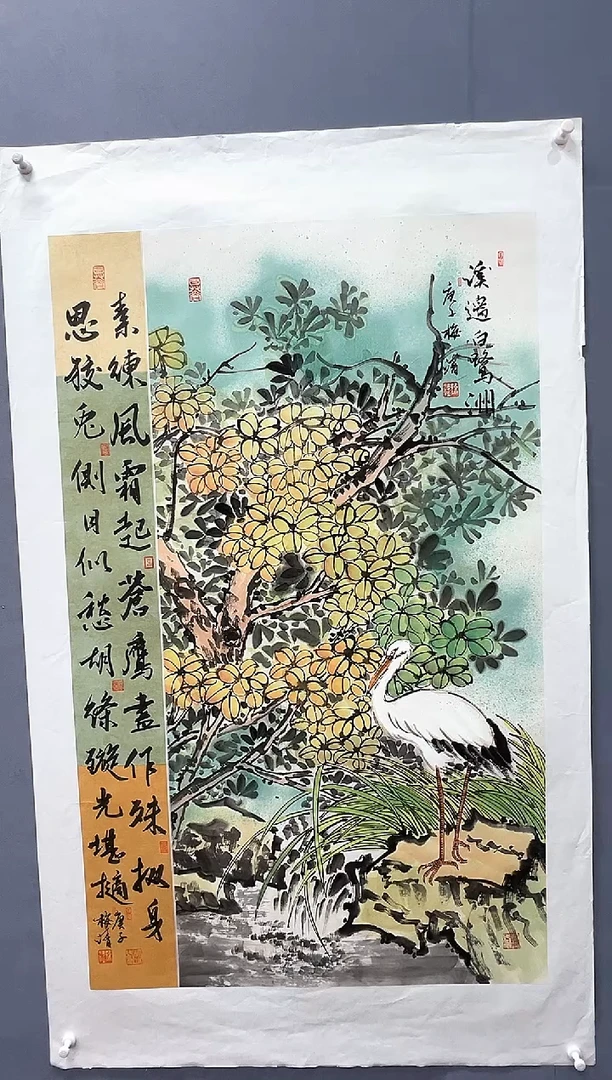 溪白鷺洲
庚子梅
素練風霜起蒼鷹畫作殊㧐身
思狡兔側目似愁胡絛鏇光堪擿
庚子
梅